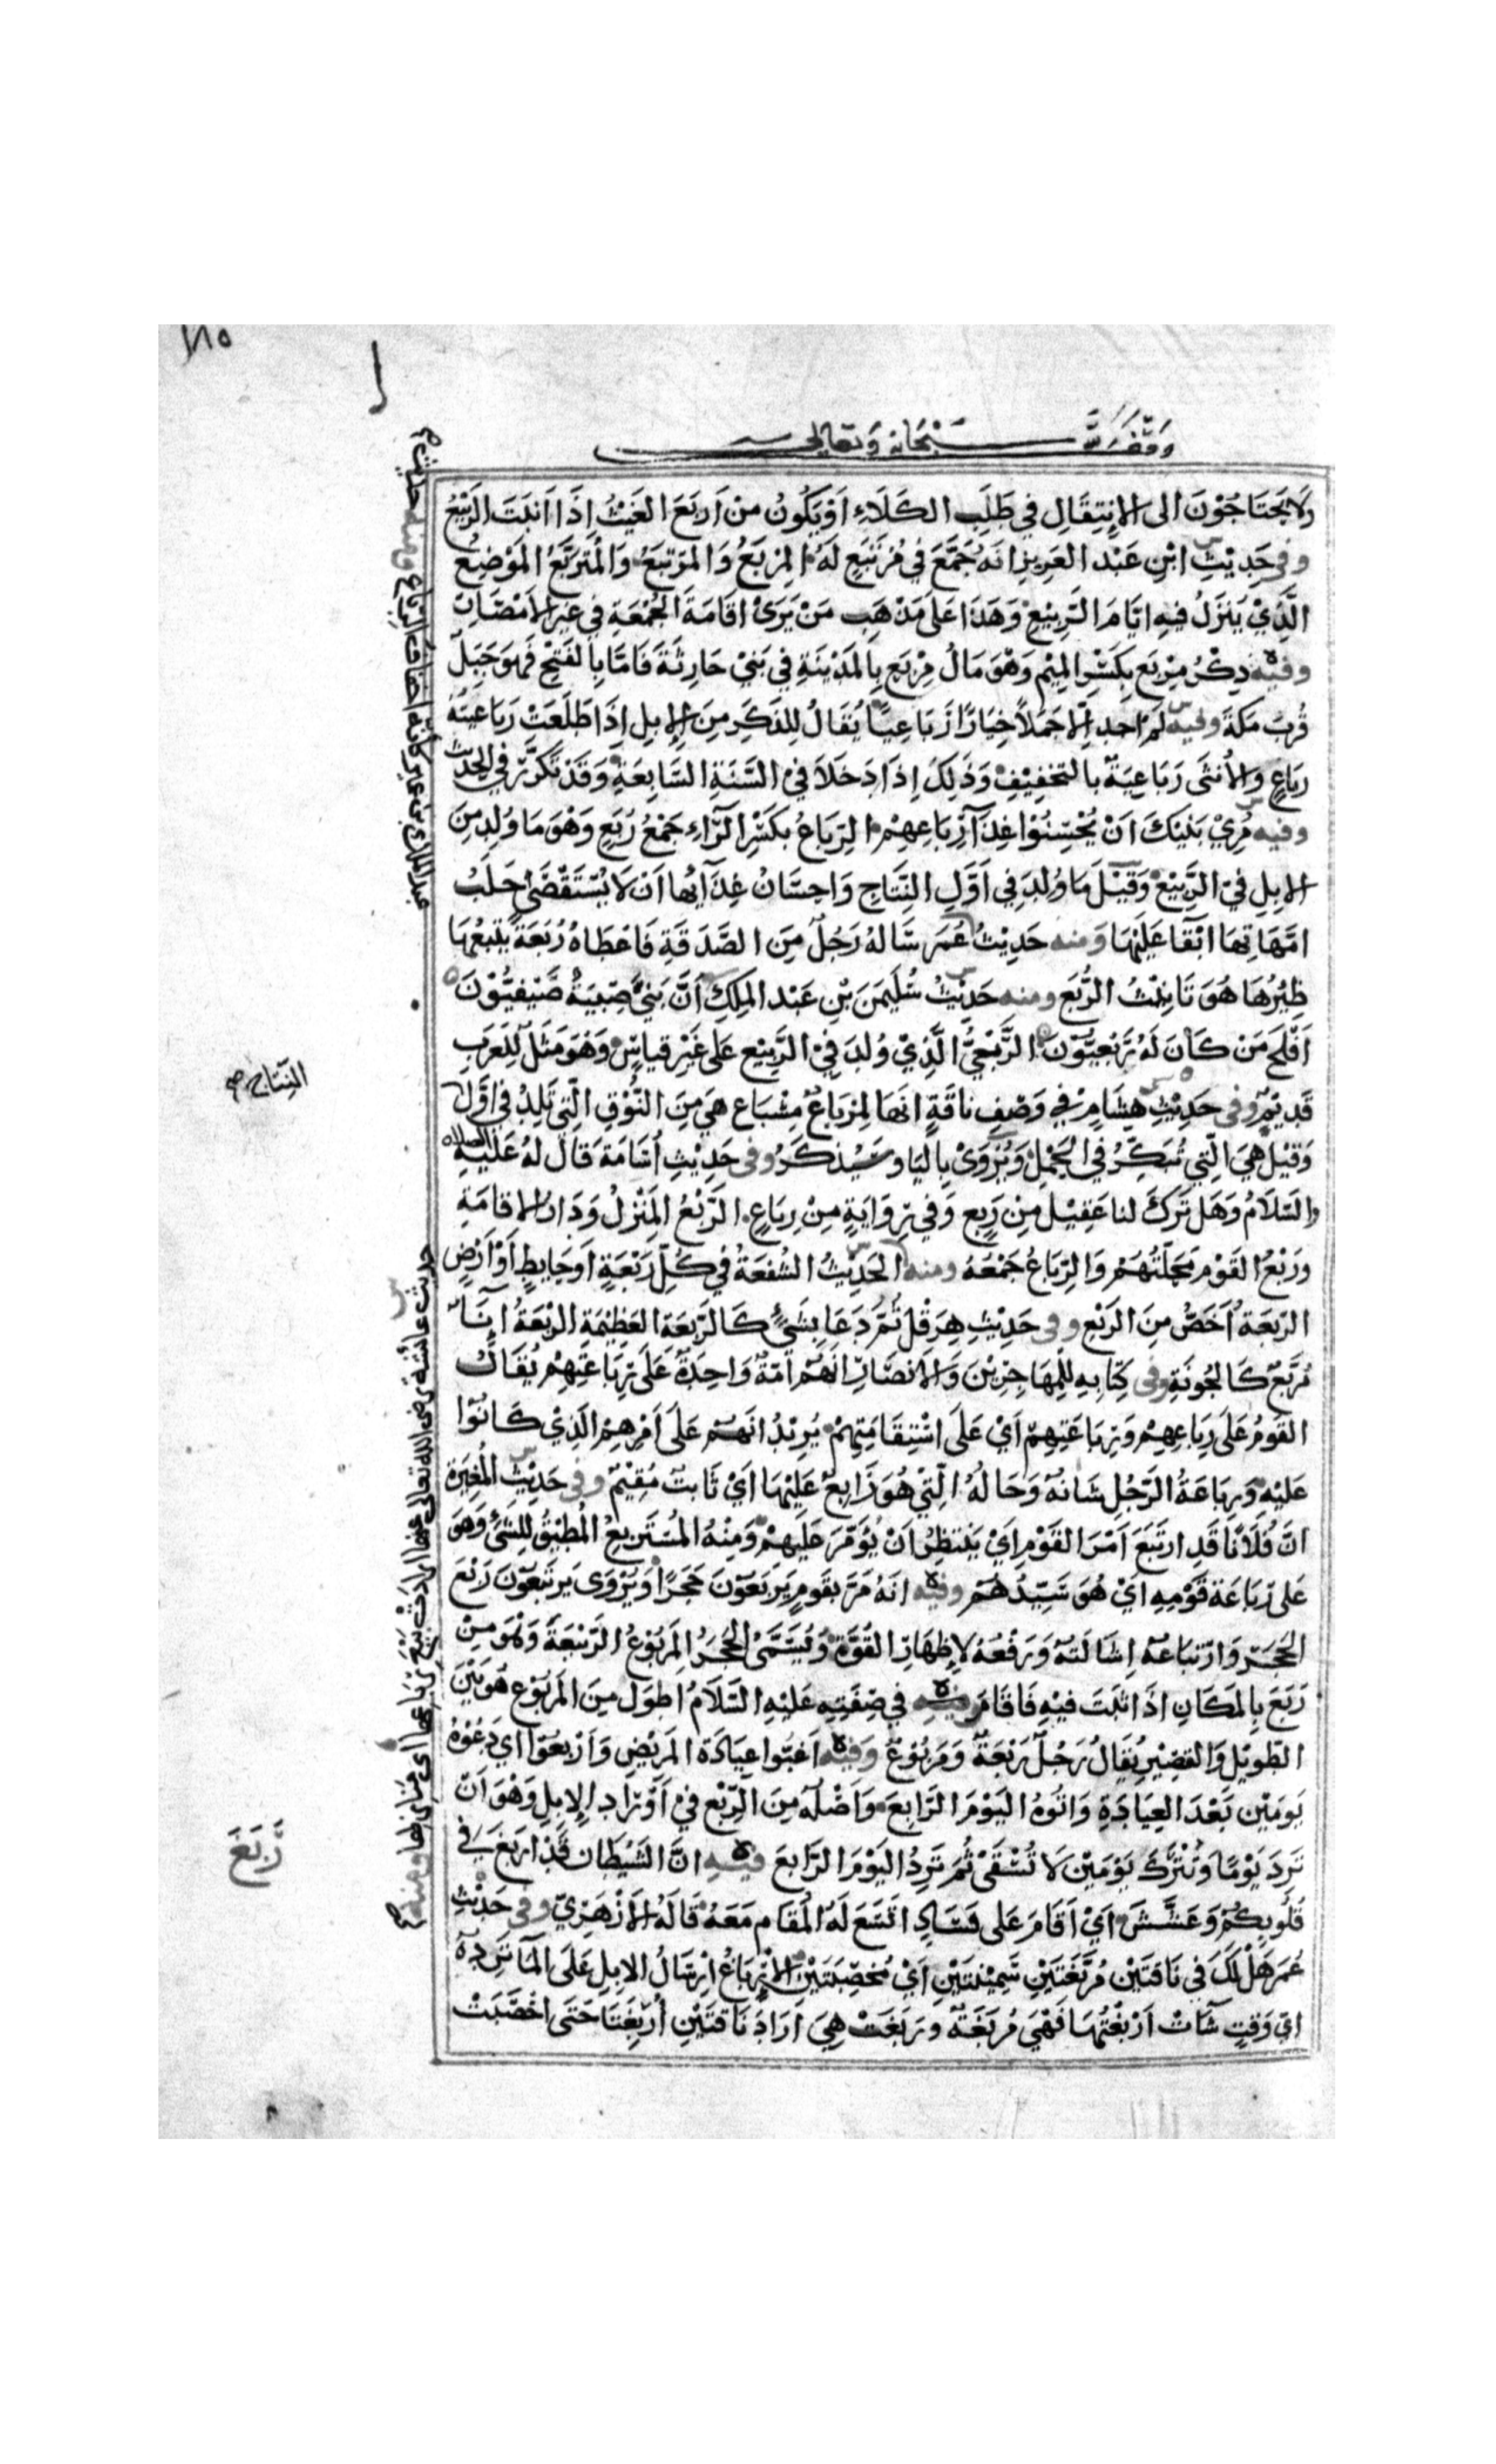 ١٨٥
وقف لله سبحانه وتعالى
وَلَا يَحتَاجُوْنَ الى الاِنتِقَالِ في طَلَبِ الكَلَاءِ اَوْيَكُونُ مِنْ اَربَعَ الغَيْثُ اِذَا اَنبَتَ الرَّبِيْعُ
وفي حَدِيْثِ ابْنِ عَبْد العَزِيزِ انَهُ جَمَّعَ في مُرتَبَعٍ لَهُ المِرْبَعُ وَالمرتبَعُ وَالمُتَرَبَّعُ المَوْضِعُ
الَّذِيْ يَنزَلُ فيهِ ايَّامَ الرَّبِيْعِ وَهَذَا عَلَى مَذْهَبِ مَنْ يَرَى اقَامَةَ الجُمْعَةِ في غيرِ الاَمْصَارِ
وفيه ذِكْرُ مِرْبَعٍ بِكَسْرِ المِيْمِ وَهْوَ مَالُ مِرْبَعٍ بِالمَدْيْنَةِ في بَنِيْ حَارِثَةَ فَامَّا بِالفَتْحِ فَهوَ جَبَلٌ
قُربَ مَكةَ وفيه لم اَجد اِلّا جَمَلاً خِيَارًا رَبَاعِيًا يُقَالُ لِلذَكَرِ مِنَ الاِبِلِ اِذَا طَلَعَتْ رَبَاعِيتُهُ
رَبَاعٍ وَالأنثَى رَبَاعِيَةٌ بِالتخفِيْفِ وَذَلِكَ اِذَا دَخَلَا فيْ السَّنَةِ السَّابِعَةِ وَقَدْ تَكرَّرَ في الحَديث
وفيه مُرِيْ بَنِيْكَ اَنْ يُحْسِنُوْا غِذَآءَ رِبَاعِهِمْ الرِبَاعُ بكَسْرِ الرَّاءِ جَمْعُ رُبَعٍ وَهْوَ مَا وُلِدَ مِنَ
الابِلِ فيْ الرَّبِيْعْ وَقِيْلَ مَا وُلدَ في اَوَّلِ النِّتَاجِ وَاحِسَانُ غِذَآئِها اَنْ لَا يُسْتَقْصَىْ حَلَبُ
امَّهَاتِهَا ابْقَآ عَلَيْهَا وَمنه حَدِيْثُ عُمَرَ سَّالهُ رَجُلٌ مِنَ الصَّدَقَةِ فَاعْطَاهُ رُبَعَةً يتْبعُهَا
ظِئْرُهَا هُوَ تَانِيْثُ الرُّبَعِ ومنه حَدِيْثُ سُلَيْمَنَ بْنِ عَبْد المَلِكِ اَنَّ بَنيَّ صِبْيَةٌ صَّيْفِيُّوْنَ
اَفْلَحَ مَن كَانَ لَهُ رَبْعِيُّوْنَ الرِّبْعِيُّ الَّذِيْ وُلدَ فيْ الرَّبِيْعِ عَلَى غَيْرِ قياسٍ وَهْوَ مَثَلٌ لِلعَرَبِ
قَدِيْمٌ وفى حَدِيْثِ هِشَامٍ في وَصْفِ نَاقَةٍ انَهَا لَمِرْبَاعٌ مِسْيَاعٌ هيَ مِنَ النُّوْقِ الَّتِي تَلِدُ في اَوَّل
وَقِيْلَ هِيَ الَّتِي تُبَكِّرُ في الحَمْلِ وَيُرْوَىْ بِاليَا وسَيُذكَرُ وفى حَدِيْثِ اُسَامَةَ قَالَ لهُ عَلَيْهِ الصلاه
وَالسَّلاَمُ وَهَل تَرَكَ لنا عَقِيْل مِنْ رَبع وَفي رِوَايَةٍ مِنْ رِبَاعٍ الرَّبْعُ المَنْزِلُ وَدَارُ الاِقامَةِ
وَرَبْعُ القَوْمِ مَحَلّتُهُمْ وَالرِّبَاعُ جَمْعَهُ ومنه الحَدِيْثُ الشُفعَةُ في كُلِّ رَبْعَةٍ اَو حَايطٍ اَوْ اَرْضٍ
الرَّبعَةُ اَخَصُّ مِنَ الرَبْعِ وفى حَدِيْثِ هِرَقْلَ ثُمَّ دَعَا بِشَيْءٍ كَالرَّبعَةِ العَظِيْمَةِ الرَّبْعَةُ اِنَآءٌ
مُرَبَّعٌ كَالجُونَةِ وفى كِتَابِهِ لِلْمُهَاجِرِيْنَ وَالاَنصَارِ انَهُم اُمّةٌ وَاحِدَةٌ عَلَى رِبَاعَتِهِمْ يُقَالُ
القَومُ عَلَى رِبَاعِهِمْ وَرِبَاعَتِهِمْ اَيْ عَلَى اسْتِقَامَتِهِمْ يُرِيْدُ انَهُم عَلَى اَمْرِهِمِ الَّذِيْ كَانُوْا
عَلَيْهِ وَرِبَاعَةُ الرَّجُلِ شَانُهُ وَحَالُهُ الّتِيْ هُوَ رَابِعٌ عَلَيْهَا اَيْ ثَابتٌ مُقِيْمٌ وفى حَدِيْثِ المُغِيْرَة
انَّ فُلَانًا قَدِ ارتَبَعَ اَمْرَ القَوْمِ اَيْ يَنتظِرُ اَنْ يُؤَمَّرَ عَلَيهِمْ وَمِنْهُ المُسْتَرْبِعُ المُطِيْقُ لِلشَّيْءِ وَهوَ
عَلَى رَبَاعَة قَوْمِهِ ايْ هُوَ سَيِّدُهُم وفيه انَهُ مَرَّ بقَومٍ يَربَعُوْنَ حَجَرًا وَيُرْوَى يَرتَبعُوْنَ رَبْعُ
الحَجَرِ وَارْتبَاعُهُ اِشَالَتُهُ وَرَفْعُهُ لاِظهَارِ القُوَّةِ وَيُسَمَّىْ الحَجَرُ المَربُوْعُ الرَّبْعَةَ وَهْوَ مِنْ
رَبَعَ بِالمَكَانِ اذَا ثَبَتَ فيْهِ فَاقَامَ وفيه في صِفَتِهِ عَلَيْهِ السَّلَامُ اطوَلَ مِنَ المَربُوْعِ هُوَ بَيْنَ
الطَوِيْلِ وَالقصِيْرِ يُقَالُ رَجُلٌ رَبْعَةٌ وَمَربُوْعٌ وَفيْه اَغِبُّوا عِيَادَةَ المَرِيْضِ وَاَرْبعُوْا اي دَعُوْهُ
يَومَيْنِ بَعْدَ العِيَادَةِ وَاتُوهُ اليَوْمَ الرَّابِعَ وَاَصْلُهُ مِنَ الرِّبْعِ فيْ اَوْرَادِ الاِبِلِ وَهْوَ اَنْ
تَرِدَ يَوْمًا وَتُتْرَكَ يَوْمَيْنِ لَا تُسْقَىْ ثُمَّ تَرِدُ اليَوْمَ الرَّابِعَ فيه انَّ الشَيْطَان قَدْ اربَغَ في
قُلُوبِكُمْ وَعَشَّشَ اَيْ اَقَامَ عَلى فَسَادٍ اتسَعَ لَهُ المُقَامُ مَعَهُ قَالَهُ الاَزْهَرِيّ وفى حَدِيْثِ
عُمَرَ هَلْ لَكَ في نَاقتَيْنِ مُرَبَّغَتَيْنِ سَّمِيْنَتَيْنِ اَيْ مُخصِّبَتَيْنِ الاِرْبَاغُ ارْسَالُ الابِلِ عَلَى المَآءِ تَرِدُهُ
ايَّ وَقتٍ شَآءَتْ اَرْبَغْتُهَا فَهْيَ مُربَغَةٌ ورَبَغَتْ هِيَ اَرَادَ نَاقتَيْنِ اُرْبِغَتَا حَتَى اخْصَبَتْ
النِّتَاج صح
رَبَغَ
حديث عائشة رضى الله تعالى عنها ارادت بيع رباعها اى منازلها ومنه